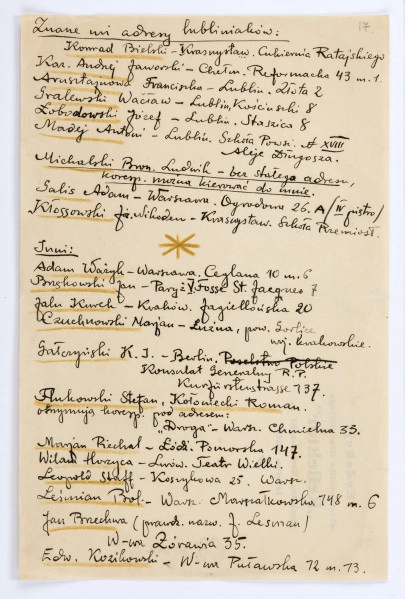 17.
Znane mi adresy lubliniaków:
Konrad Bielski – Krasnystaw. Cukiernia Ratajskiego
Kaz. Andrzej Jaworski – Chełm. Reformacka 43 m. 1.
Arnsztajnowa Franciszka – Lublin. Złota 2
Gralewski Wacław – Lublin, Kościuszki 8
Łobodowski Józef – Lublin. Staszica 8
Madej Antoni – Lublin. Szkoła Powsz. № XVIII
Aleje Długosza.
Michalski Bron. Ludwik – bez stałego adresu,
koresp. można kierować do mnie.
Galis Adam – Warszawa. Ogrodowa 26. A/IV piętro/
Kłossowski Ja. Nikodem – Krasnystaw. Szkoła Rzemiosł.
Inni:
Adam Ważyk – Warszawa. Ceglana 10 m. 6
Brzękowski Jan – Paryż V Fossé St. Jacques 7
Jalu Kurek – Kraków. Jagiellońska 20
Czuchnowski Marjan – Łużna, pow. Gorlice
woj. krakowskie.
Gałczyński K. I. – Berlin, Poselstwo Polskie
Konsulat Generalny R.P.
Kurfürstenstrasse 137.
Flukowski Stefan, Kołoniecki Roman.
otrzymują koresp. pod adresem:
"Droga" – Warsz. Chmielna 35.
Marjan Piechal – Łódź. Pomorska 147.
Wilam Horzyca – Lwów. Teatr Wielki.
Leopold Staff – Koszykowa 25. Warsz.
Leśmian Bol. – Warsz. Marszałkowska 148 m. 6
Jan Brzechwa (prawdz. nazw. J. Lesman)
W-wa Żórawia 35.
Edw. Kozikowski – W-wa Puławska 12 m. 13.